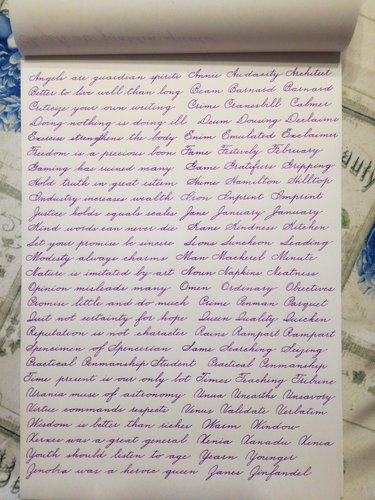 Angels are guardian spirits Annie Audacity Architect
Better to live well than long Beam Barnard Barnard
Criticize your own writing Crime Cranesbill Calmer
Doing nothing is doing ill Deum Dowing Declaim
Exercise strengthens the body Enim Emulated Exclaimer
Freedom is a precious boon Fame Festively February
Gaming has ruined many Game Gratifiers Gripping
Hold truth in great esteem Hume Hamilton Hilltop
Industry increases wealth Iron Inprint Imprint
Justice holds equals scales Jane January January
Kind words can never die Kans Kindness Kitchen
Let your promise be sincere Lions Luncheon Leading
Modesty always charms Man Mackerel Minute
Nature is imitated by art Noun Napkins Neatness
Opinion misleads many Omen Ordinary Obectives
Promise little and do much Prime Penman Parquet
Quit not certainty for hope Queen Quality Quicken
Reputation is not character Rains Rampart Rampart
Specimen of Spencerian Same Searching Seizing
Practical Penmanship Student Practical Penmanship
Time present is our only lot Times Teaching Tribune
Urania muse of astronomy Unua Unearths Unsavory
Virtue commands respects Venus Validate Verbatim
Wisdom is better than riches Warm Window
Xerxes was a great general Xenia Xanadu Xenia
Youth should listen to age Yearn Younger
Zenobia was a heroic queen Zanes Zinfandel